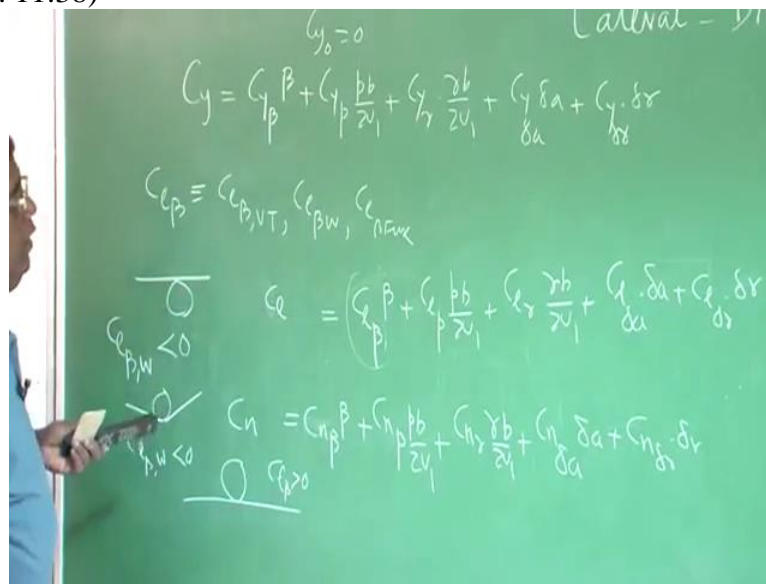 11:38)
Lateral - Di
Cy₀ = 0
Cy = Cyβ β + Cyp pb/2v₁ + Cyr · rb/2v₁ + Cyδa δa + Cyδr · δr
Clβ ≡ Clβ,VT, Clβ,W, Clβ,Fus
Cl = (Clβ β + Clp pb/2v₁ + Clr rb/2v₁ + Clδa · δa + Clδr · δr
Clβ,W < 0
Cn = Cnβ β + Cnp pb/2v₁ + Cnr rb/2v₁ + Cnδa δa + Cnδr · δr
Clβ,W < 0
Clβ > 0